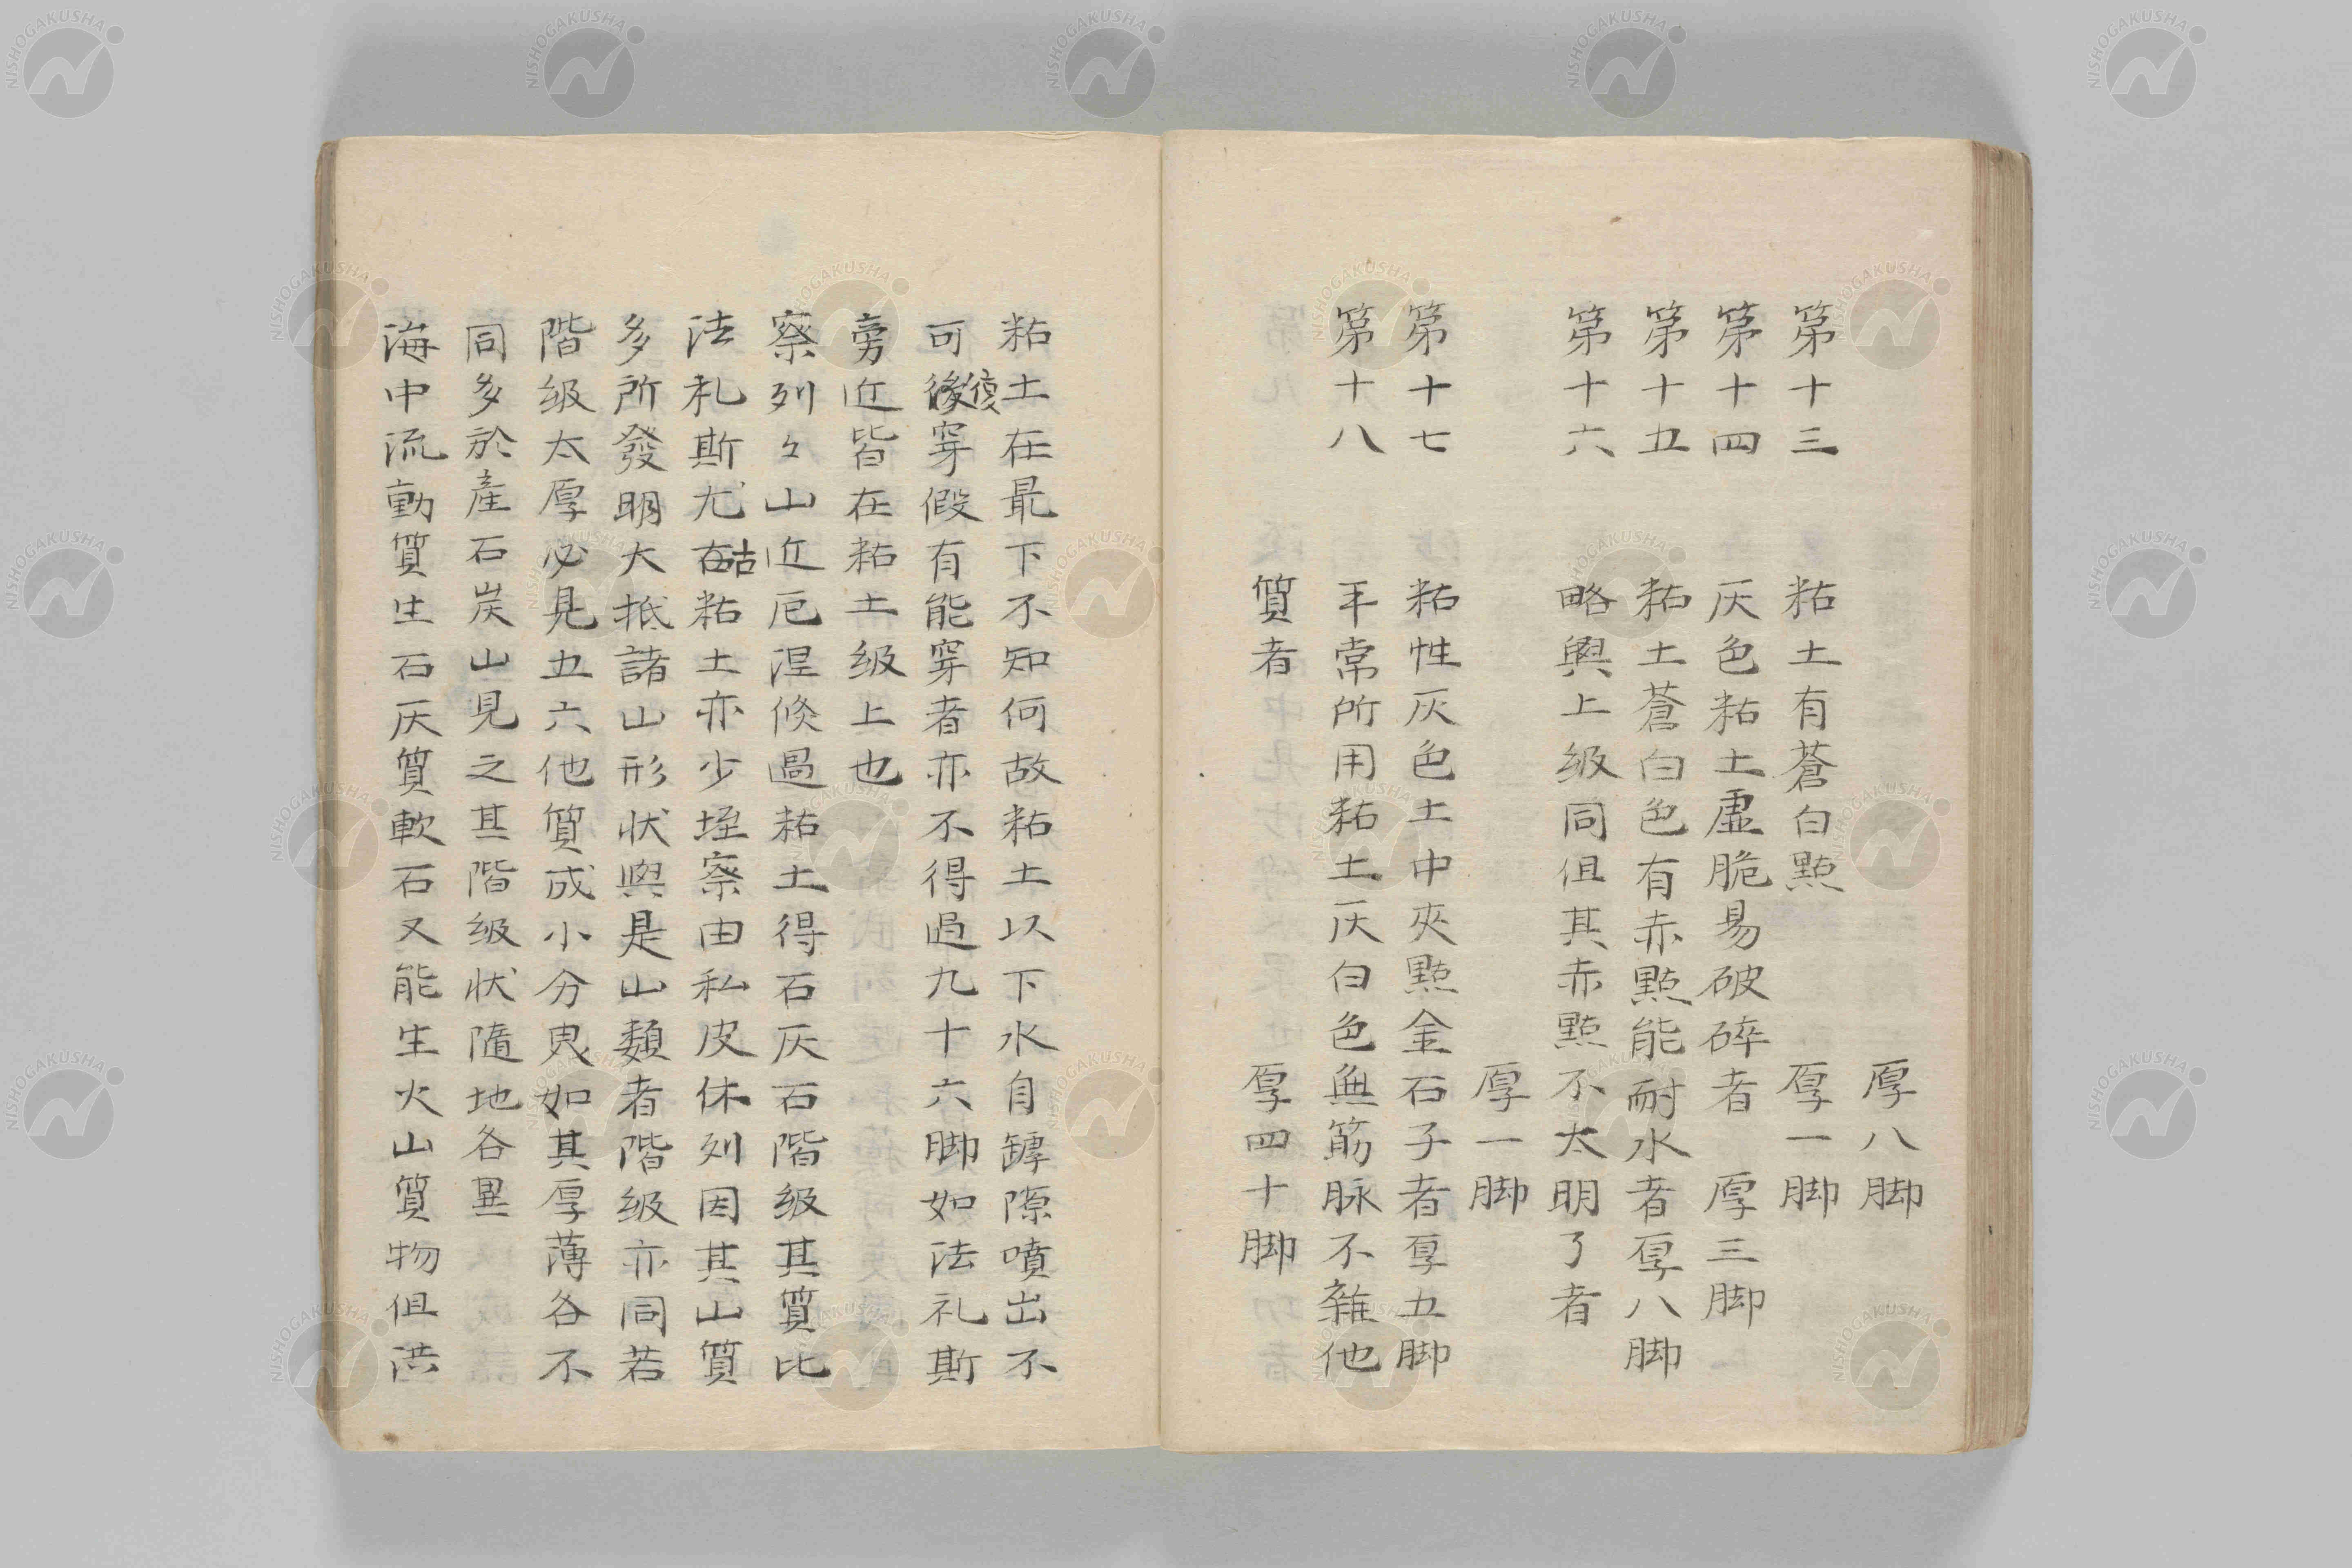 厚八脚
第十三 粘土有蒼白點 厚一脚
第十四 灰色粘土虚脆易破碎者 厚三脚
第十五 粘土蒼白色有赤點能耐水者厚八脚
第十六 略與上级同但其赤點不太明了者
厚一脚
第十七 粘性灰色土中夾點金石子者厚五脚
第十八 平常所用粘土灰白色無筋脉不雜他
質者 厚四十脚
粘土在最下不知何故粘土以下水自罅隙噴出不
可復穿假有能穿者亦不得過九十六脚如法礼斯
旁近皆在粘土级上也
察列々山近厄涅倐過粘土得石灰石階级其質比
法礼斯尤古粘土亦少垤察由私皮休列因其山質
多所發明大抵諸山形状與是山類者階级亦同若
階级太厚必見五六他質成小分曳如其厚薄各不
同多於産石炭山見之其階级状隨地各異
海中流動質生石灰質軟石又能生火山質物但洪
NISHOGAKUSHA